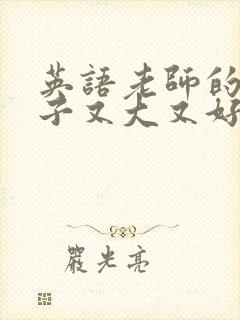 英語老師的
子又大又好
嚴光亮